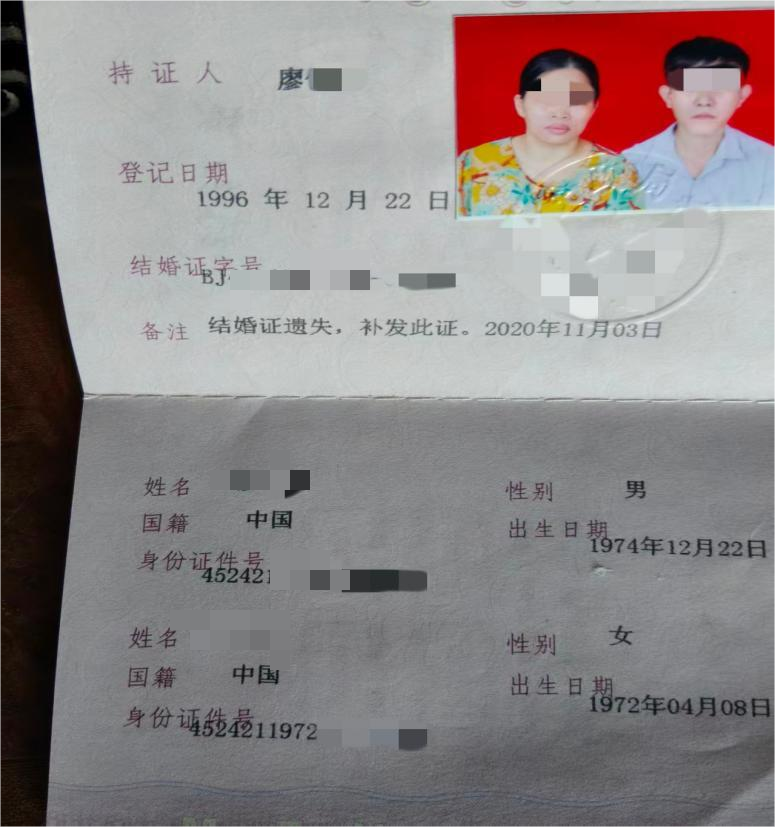 持证人 廖
登记日期
1996 年 12 月 22 日
结婚证字号
BJ
备注 结婚证遗失，补发此证。2020年11月03日
姓名 性别 男
国籍 中国 出生日期 1974年12月22日
身份证件号 452421
姓名 性别 女
国籍 中国 出生日期 1972年04月08日
身份证件号 4524211972